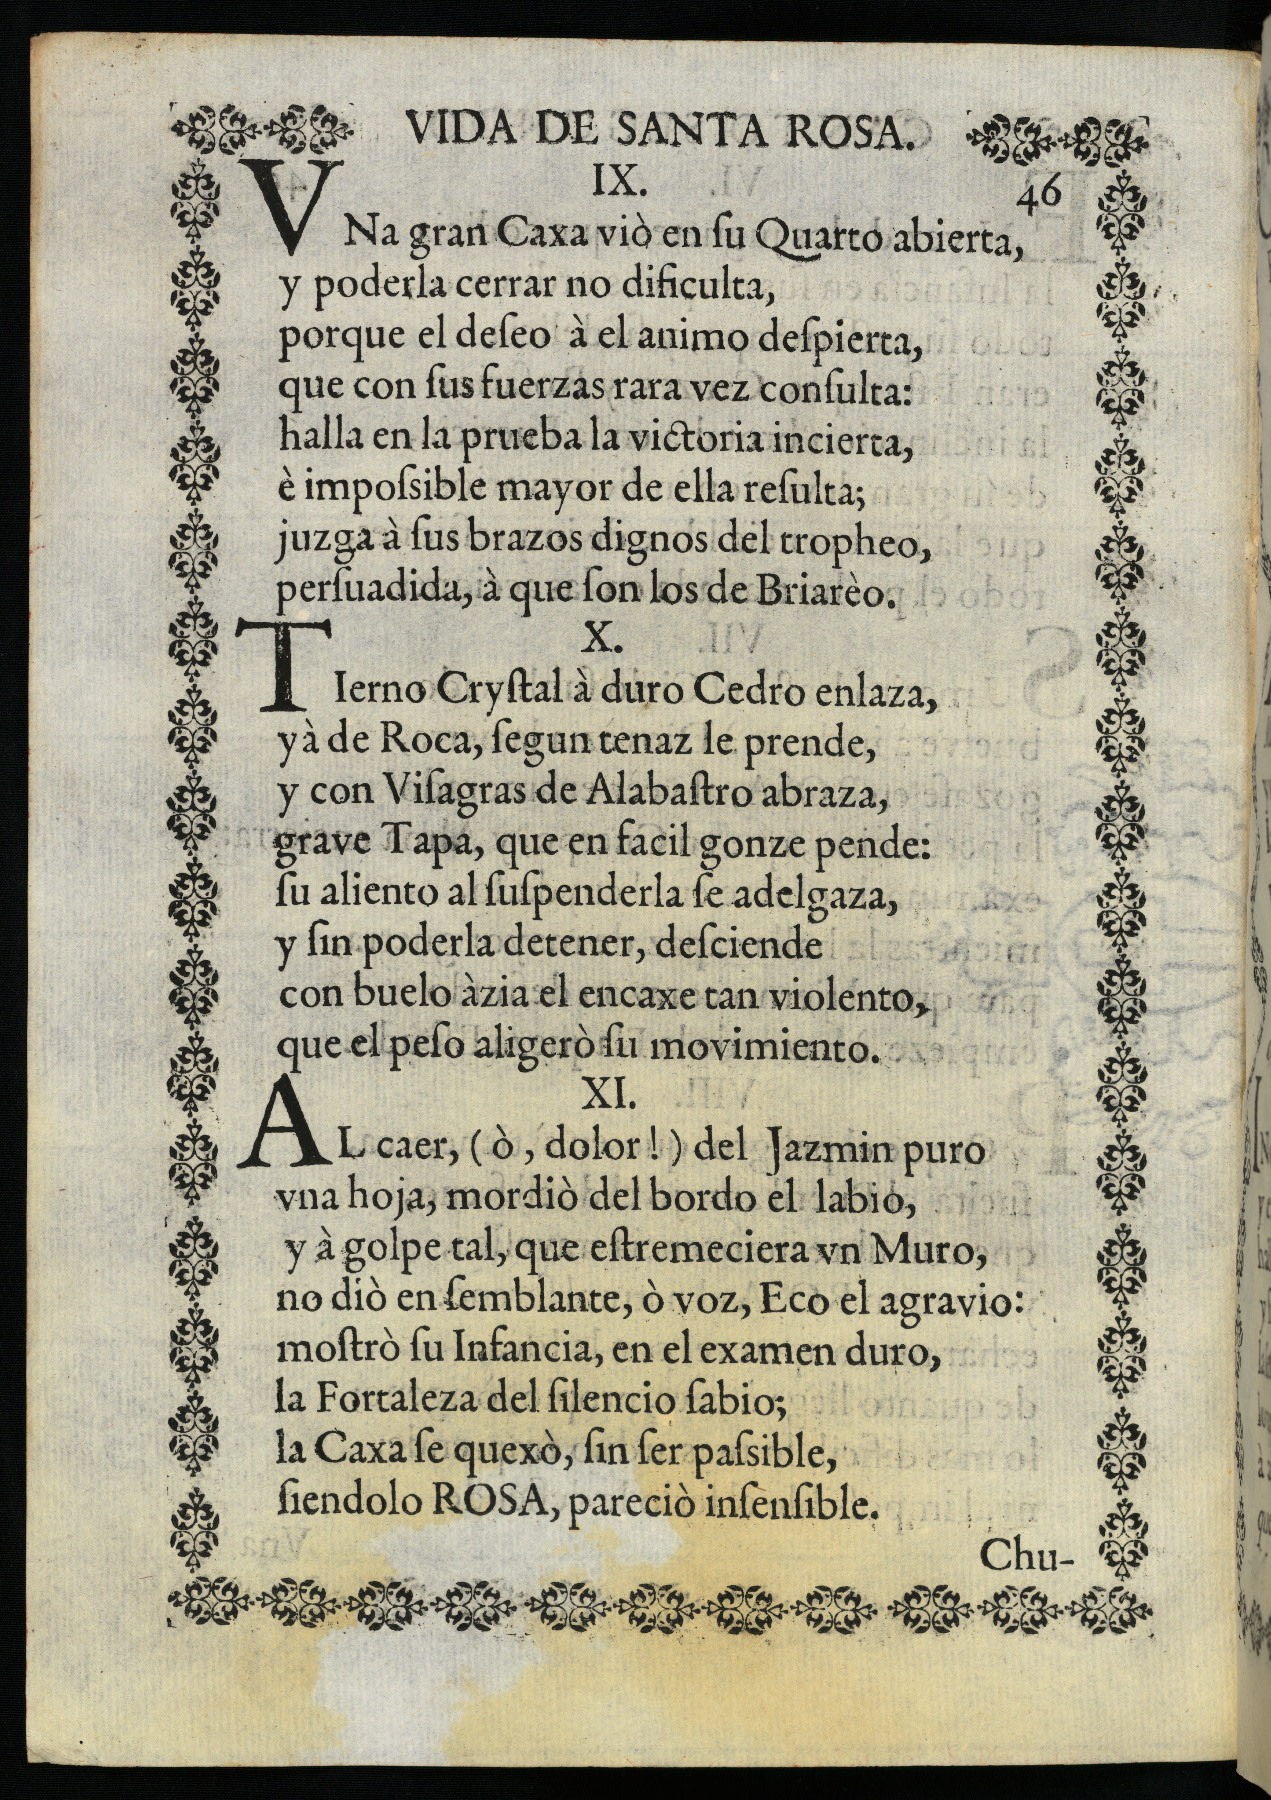 VIDA DE SANTA ROSA.
IX.
46
VNa gran Caxa viò en ſu Quarto abierta,
y poderla cerrar no dificulta,
porque el deſeo à el animo deſpierta,
que con ſus fuerzas rara vez conſulta:
halla en la prueba la victoria incierta,
è impoſsible mayor de ella reſulta;
juzga à ſus brazos dignos del tropheo,
perſuadida, à que ſon los de Briarèo.
X.
TIerno Cryſtal à duro Cedro enlaza,
yà de Roca, ſegun tenaz le prende,
y con Viſagras de Alabaſtro abraza,
grave Tapa, que en facil gonze pende:
ſu aliento al ſuſpenderla ſe adelgaza,
y ſin poderla detener, deſciende
con buelo àzia el encaxe tan violento,
que el peſo aligerò ſu movimiento.
XI.
AL caer, ( ò , dolor ! ) del Jazmin puro
vna hoja, mordiò del bordo el labio,
y à golpe tal, que eſtremeciera vn Muro,
no diò en ſemblante, ò voz, Eco el agravio:
moſtrò ſu Infancia, en el examen duro,
la Fortaleza del ſilencio ſabio;
la Caxa ſe quexò, ſin ſer paſsible,
ſiendolo ROSA, pareciò inſenſible.
Chu-